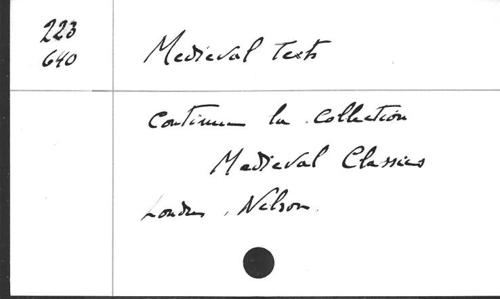 223
640
Medieval Texts
Continue la collection
Medieval Classics
Londres, Nelson.